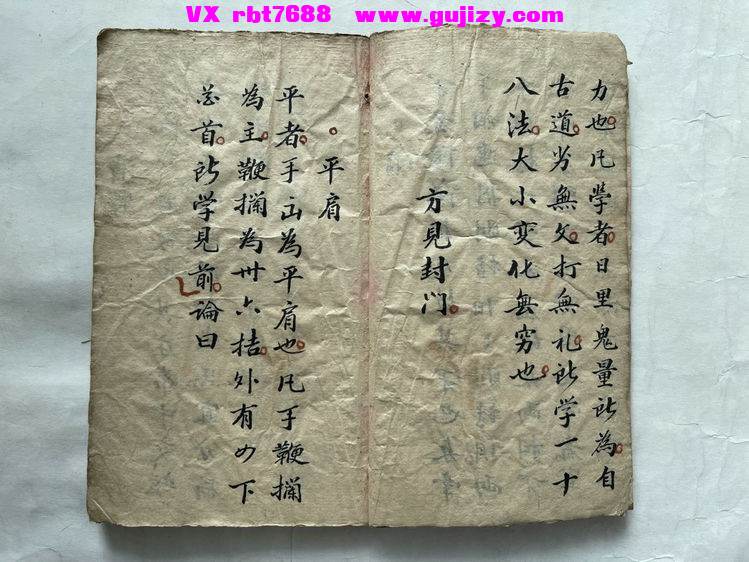 VX rbt7688 www.gujizy.com
力也凡學者日里鬼量所為自
古道劣無文打無礼所学一十
八法大小变化無穷也
方見封门
平肩
平者手出為平肩也凡手鞭攔
為主鞭攔為卅六拮外有如下
首所学見前論曰